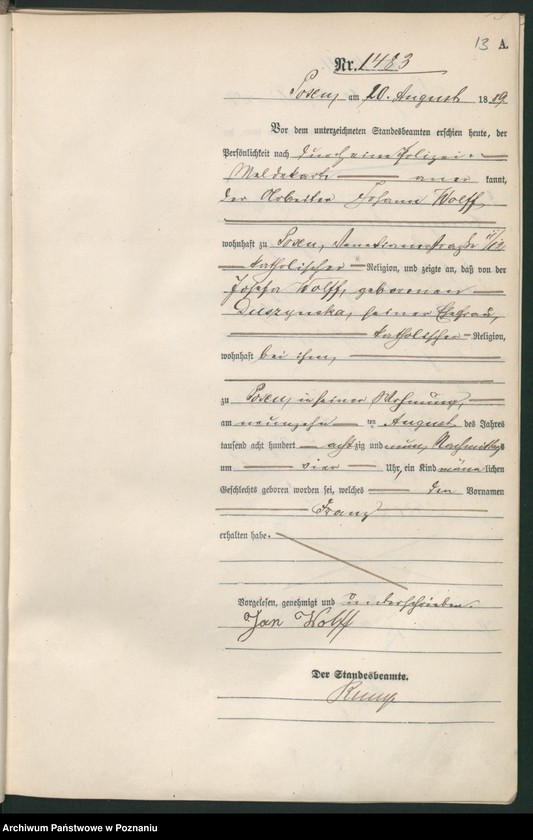 13 A.
Nr. 1483
Posen, am 20. August 1889
Vor dem unterzeichneten Standesbeamten erschien heute, der
Persönlichkeit nach durch eine Polizei-
Meldekarte anerkannt,
der Arbeiter Johann Wolff
wohnhaft zu Posen, Venetianerstraße
katholischer Religion, und zeigte an, daß von der
Josefa Wolff, geborenen
Duszynska, seiner Ehefrau,
katholischer Religion,
wohnhaft bei ihm,
zu Posen, in seiner Wohnung,
am neunzehn ten August des Jahres
tausend acht hundert achtzig und neun, Nachmittags
um vier Uhr, ein Kind männlichen
Geschlechts geboren worden sei, welches den Vornamen
Franz
erhalten habe.
Vorgelesen, genehmigt und unterschrieben.
Jan Wolff
Der Standesbeamte.
Archiwum Państwowe w Poznaniu